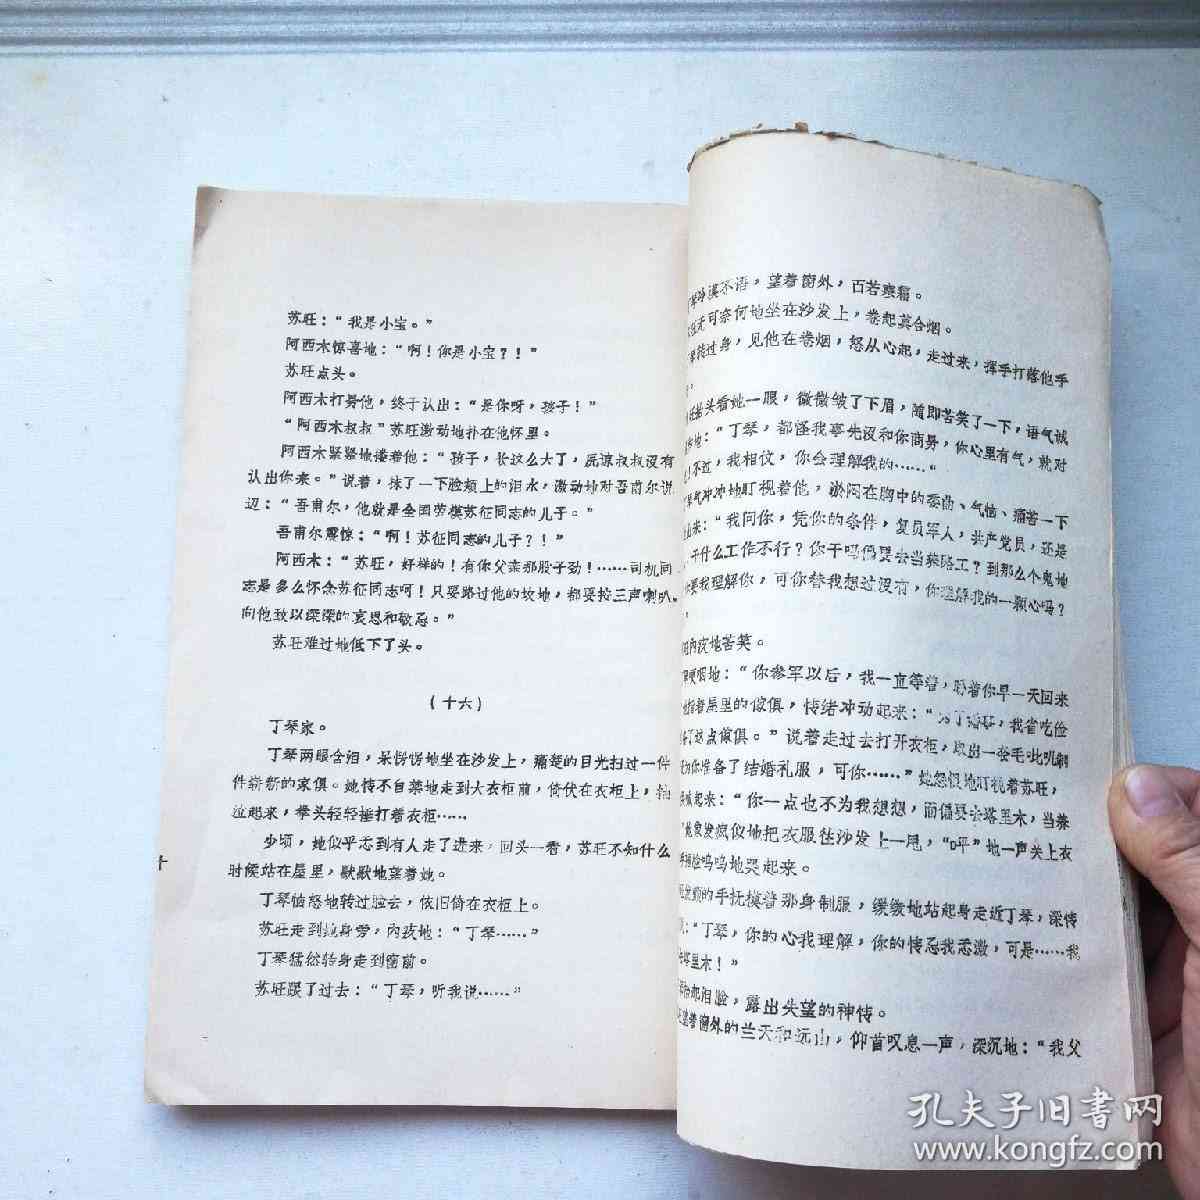 苏旺：“我是小宝。”
阿西木惊喜地：“啊！你是小宝？！”
苏旺点头。
阿西木打量他，终于认出：“是你呀，孩子！”
“阿西木叔叔”苏旺激动地扑在他怀里。
阿西木紧紧地搂着他：“孩子，长这么大了，原谅叔叔没有
认出你来。”说着，抹了一下脸颊上的泪水，激动地对吾甫尔说
边：“吾甫尔，他就是全国劳模苏征同志的儿子。”
吾甫尔震惊：“啊！苏征同志的儿子？！”
阿西木：“苏旺，好样的！有你父亲那股子劲！……司机同
志是多么怀念苏征同志啊！只要路过他的坟地，都要按三声喇叭，
向他致以深深的哀思和敬意。”
苏旺难过地低下了头。
（十六）
丁琴家。
丁琴两眼含泪，呆愣愣地坐在沙发上，痛楚的目光扫过一件
件崭新的家俱。她情不自禁地走到大衣柜前，倚伏在衣柜上，抽
泣起来，拳头轻轻捶打着衣柜……
少顷，她似乎感到有人走了进来，回头一看，苏旺不知什么
时候站在屋里，默默地望着她。
丁琴愤怒地转过脸去，依旧倚在衣柜上。
苏旺走到她身旁，内疚地：“丁琴……”
丁琴猛然转身走到窗前。
苏旺跟了过去：“丁琴，听我说……”
十
琴冷漠不语，望着窗外，面若寒霜。
无可奈何地坐在沙发上，卷起莫合烟。
琴转过身，见他在卷烟，怒从心起，走过来，挥手打落他手
抬头看她一眼，微微皱了下眉，随即苦笑了一下，语气诚
地：“丁琴，都怪我事先没和你商量，你心里有气，就对
不过，我相信，你会理解我的……”
气冲冲地盯视着他，淤闷在胸中的委曲、气恼、痛苦一下
出来：“我问你，凭你的条件，复员军人，共产党员，还是
，干什么工作不行？你干吗偏要去当养路工？到那么个鬼地
要我理解你，可你替我想过没有，你理解我的一颗心吗？
内疚地苦笑。
哽咽地：“你参军以后，我一直等着，盼着你早一天回来
指着屋里的傢俱，情绪冲动起来：“为了结婚，我省吃俭
了这点傢俱。”说着走过去打开衣柜，取出一套毛哔叽制
为你准备了结婚礼服，可你……”她怨恨地盯视着苏旺，
喊起来：“你一点也不为我想想，而偏要去塔里木，当养
”她象发疯似地把衣服往沙发上一甩，“呯”地一声关上衣
捂脸呜呜地哭起来。
的手抚摸着那身制服，缓缓地站起身走近丁琴，深情
：“丁琴，你的心我理解，你的情意我感激，可是……我
塔里木！”
泪脸，露出失望的神情。
望着窗外的兰天和远山，仰首叹息一声，深沉地：“我父
孔夫子旧书网
www.kongfz.com